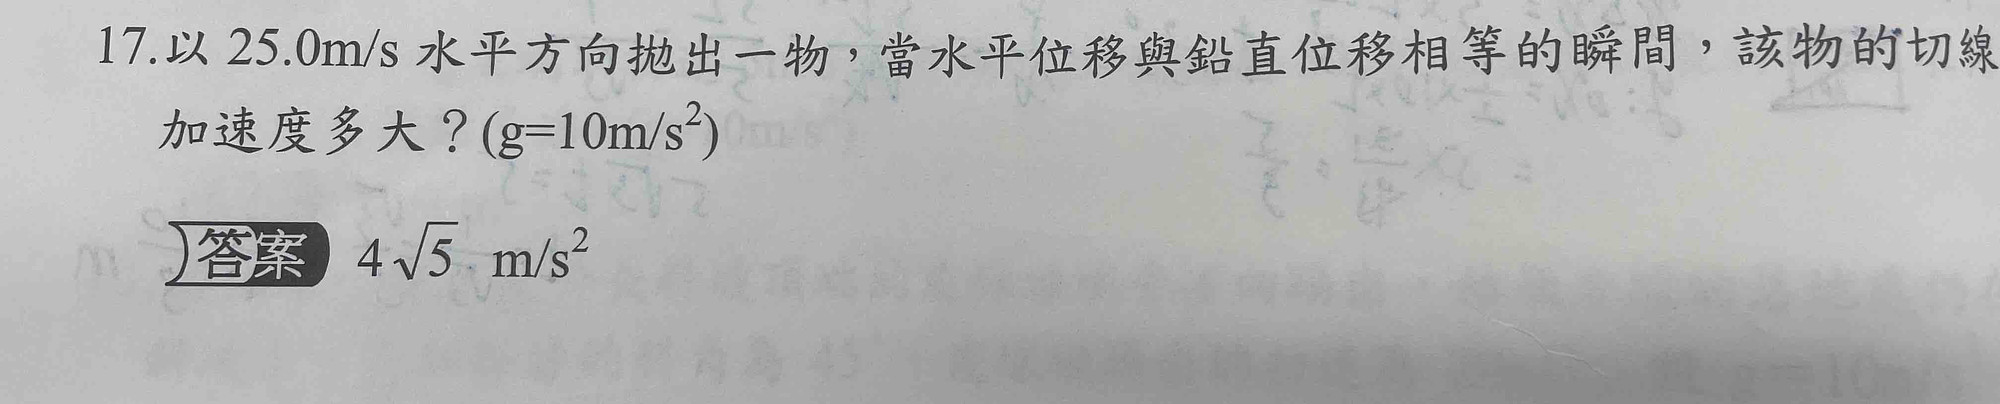 17.以 25.0m/s 水平方向拋出一物，當水平位移與鉛直位移相等的瞬間，該物的切線
加速度多大？(g=10m/s²)
答案 4√5 m/s²